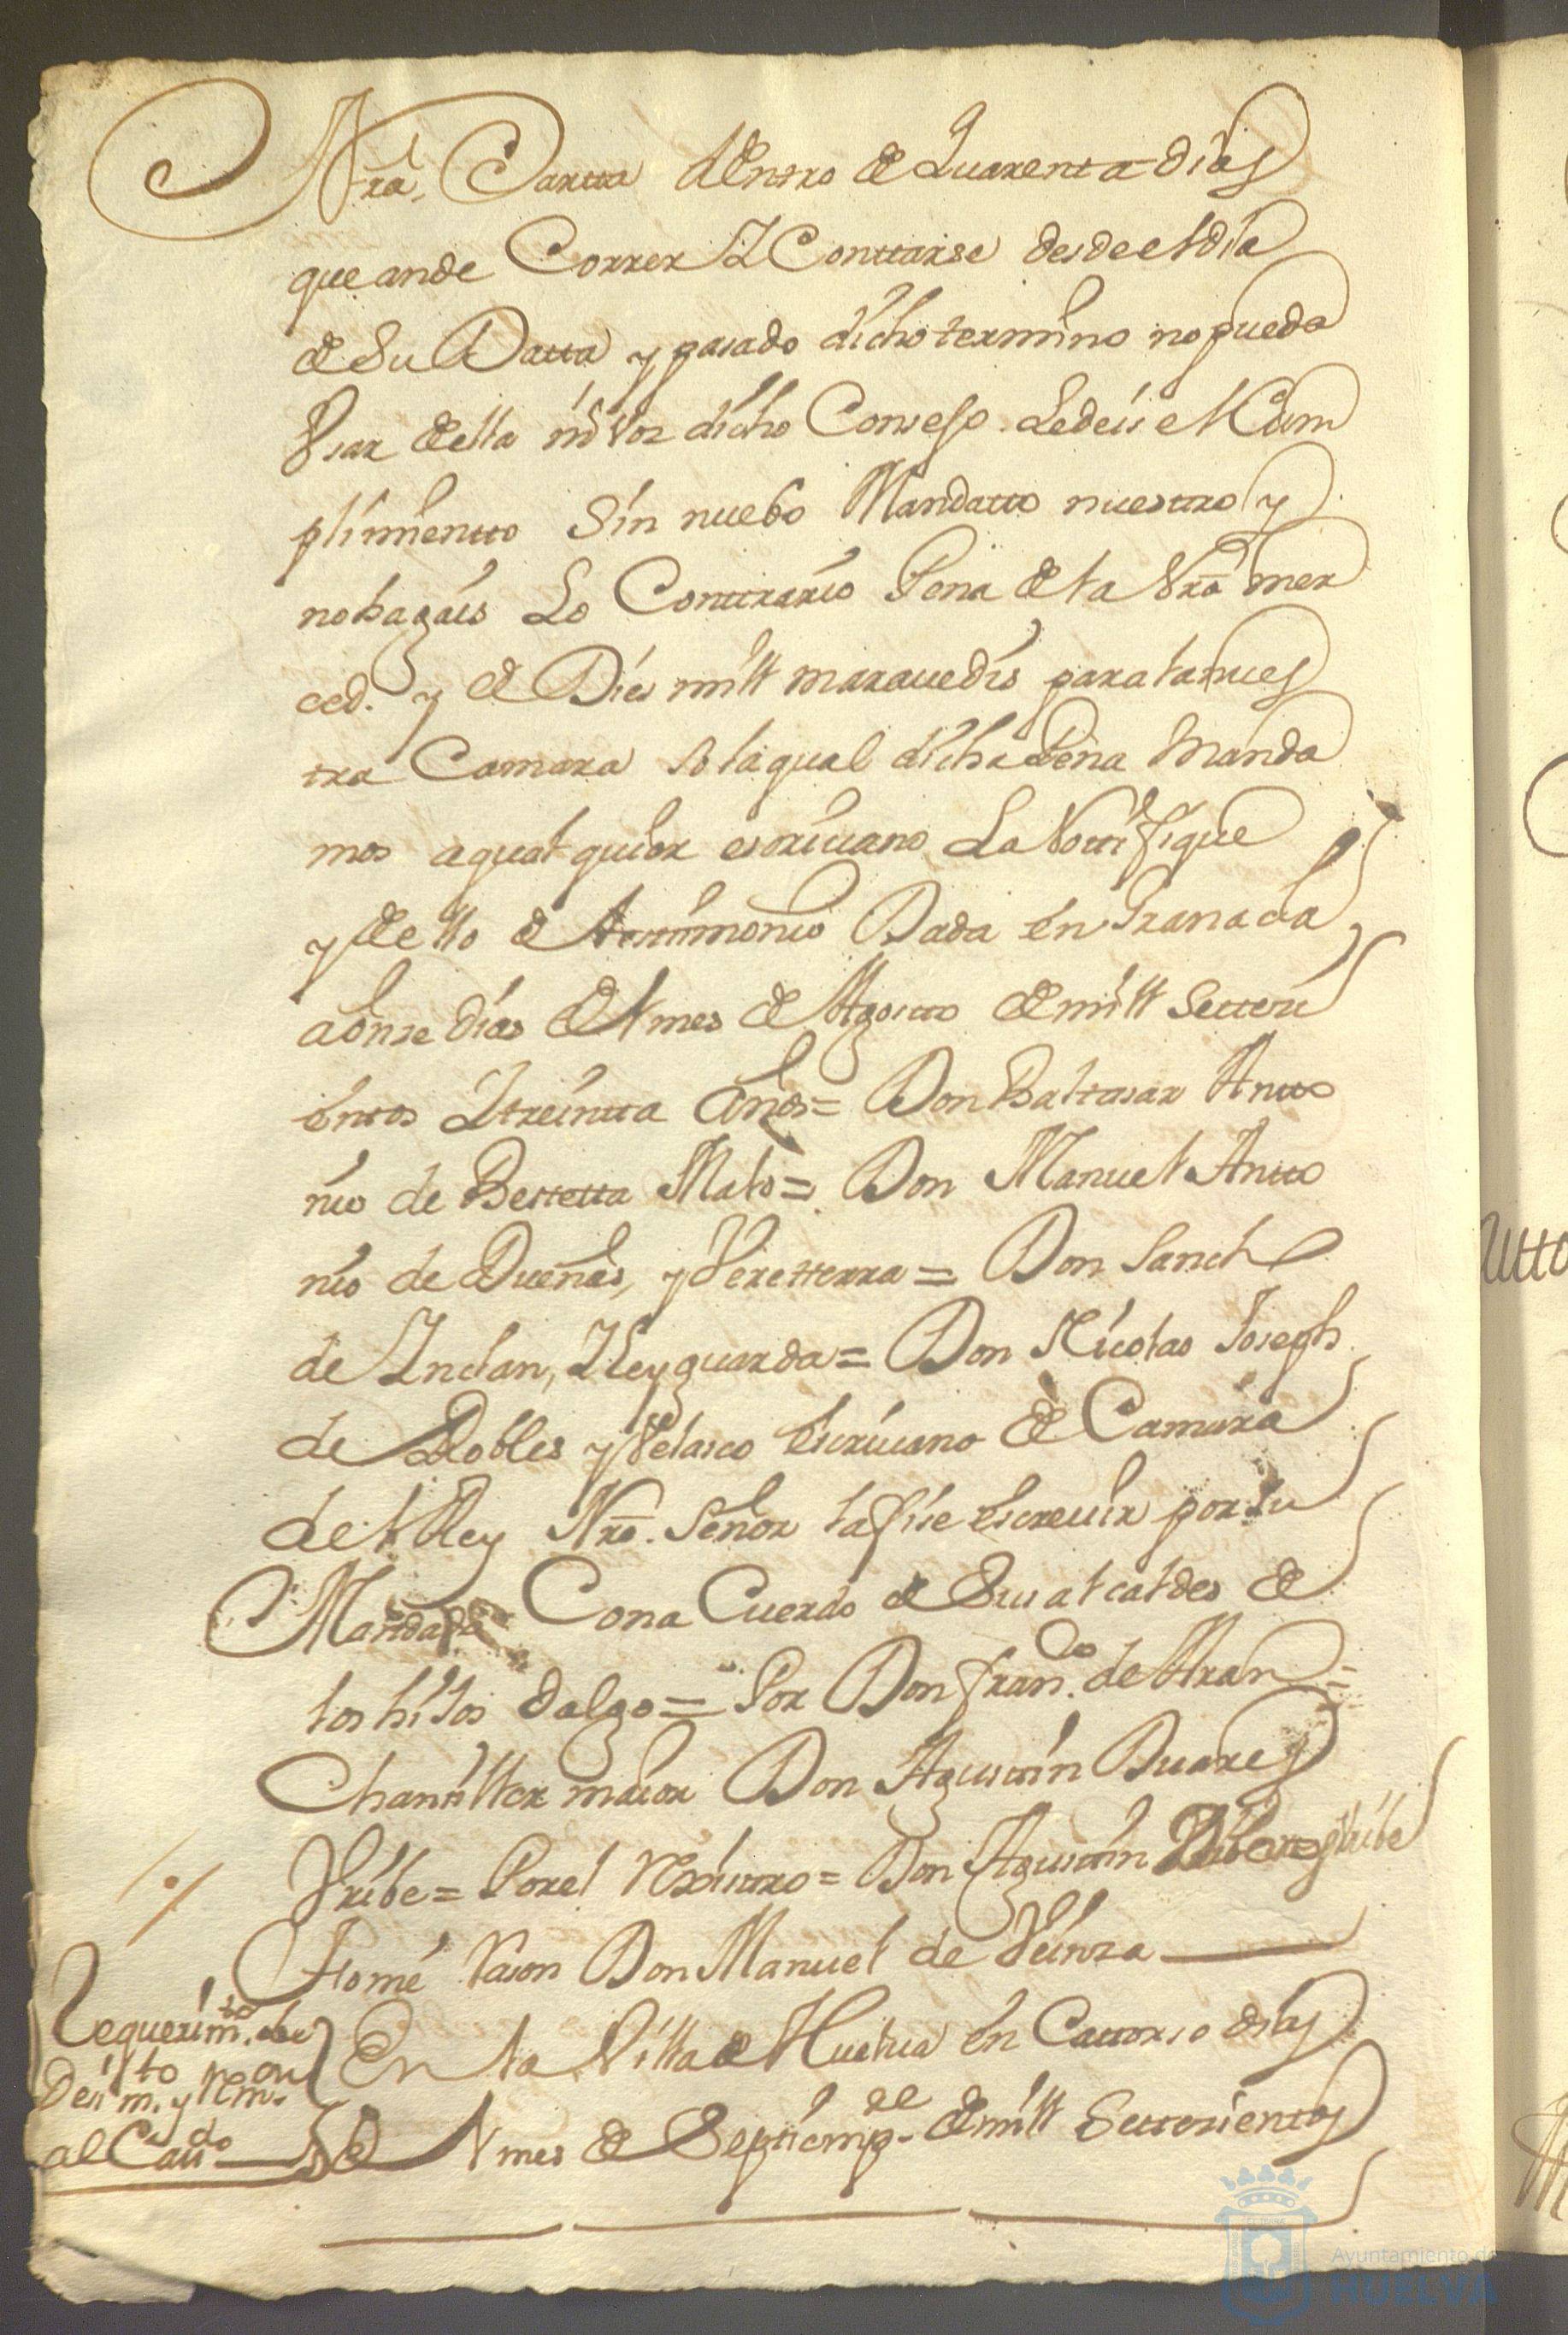 Nrã. Cartta dentro de Quarenta dias
que ande Correr Y Conttarse desde el dia
de Su Datta y pasado dicho termino no pueda
Vsar della ni Vos dicho Consejo Ledeis el Cum
plimientto Sin nuebo Mandatto nuesttro y
nohagais Lo Conttrario Pena de la Nrã mer
ced. y de Dies mill marauedis para la nues
tra Camara So la qual dicha Pena Manda
mos aqual quier escriuano La Nottifique
y dello de testtimonio Dada en Granada
a onse dias del mes de Agostto de mill Settesi
entos Y treintta Años = Don Baltasar Antto
nio de Malo = Don Manuel Antto
nio de Dueñas, y = Don Sancho
de Inclan, Leyguarda = Don Nicolas Joseph
de Robles y Velasco Escriuano de Camara
del Rey Nrõ. Señor la fise Escreuir por su
Mandado Con a Cuerdo de Sus alcaldes de
los hijos dalgo = Por Don fran.co de Aran =
Chansiller maior Don Agusttin Duares
Vribe = Por el Rexisttro = Don Agusttin Vribe
Tomé rason Don Manuel de
Requerim.to de
m.to y Cum.
al Cau.do
En la Villa de Huelua en Cattorse dias
del mes de Septiemp.re de mill Settesientos
Ayuntamiento de
HUELVA